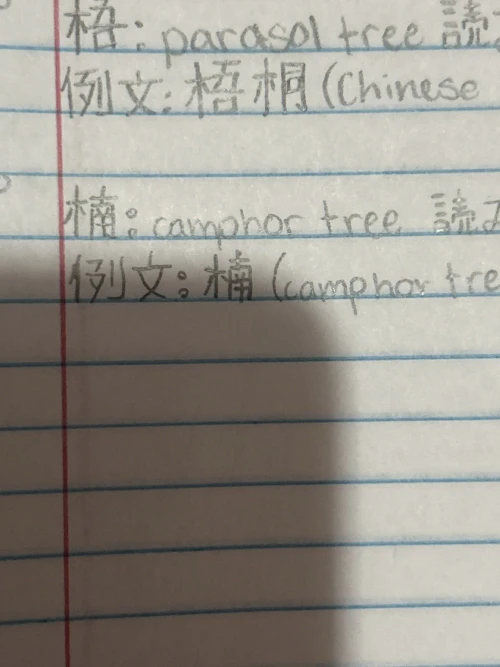 梧: parasol tree 読
例文: 梧桐 (Chinese
楠: camphor tree 読み
例文: 楠 (camphor tre